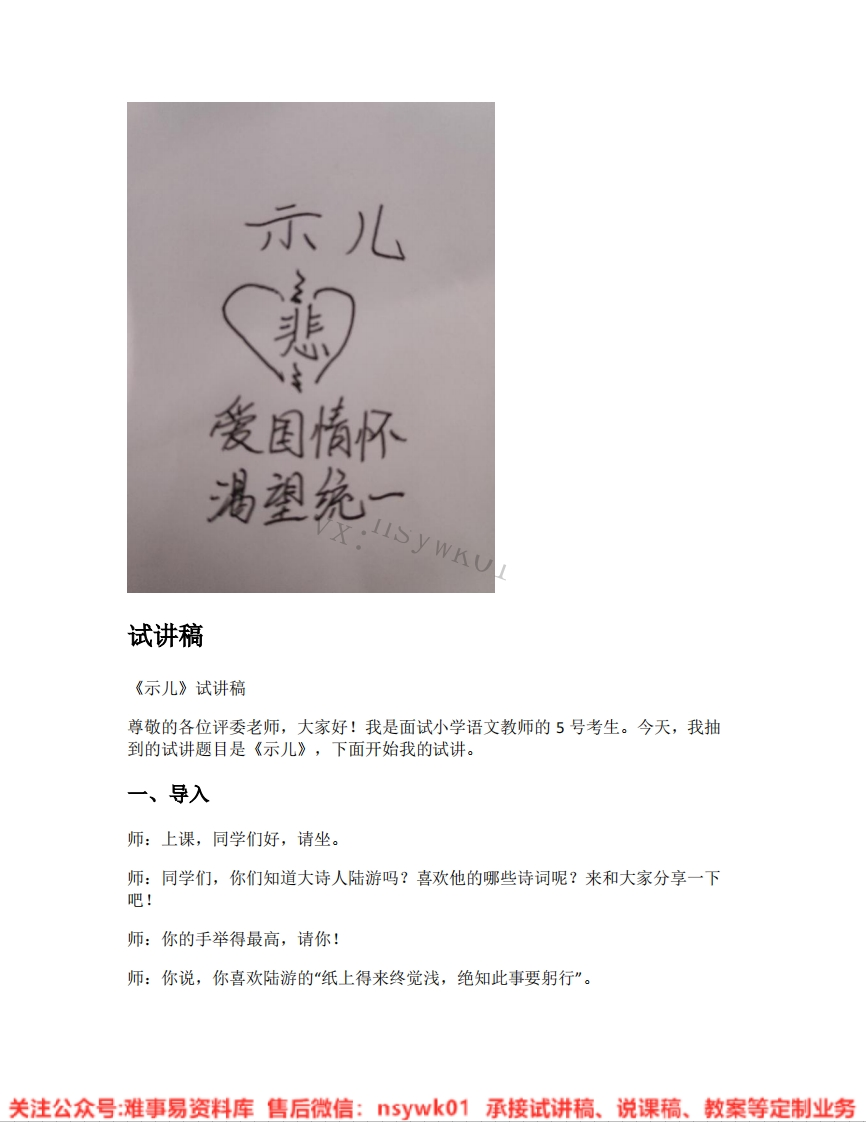 示儿
悲
爱国情怀
渴望统一
vx:nsywk01
试讲稿
《示儿》试讲稿
尊敬的各位评委老师，大家好！我是面试小学语文教师的 5 号考生。今天，我抽
到的试讲题目是《示儿》，下面开始我的试讲。
一、导入
师：上课，同学们好，请坐。
师：同学们，你们知道大诗人陆游吗？喜欢他的哪些诗词呢？来和大家分享一下
吧！
师：你的手举得最高，请你！
师：你说，你喜欢陆游的“纸上得来终觉浅，绝知此事要躬行”。
关注公众号:难事易资料库 售后微信：nsywk01 承接试讲稿、说课稿、教案等定制业务